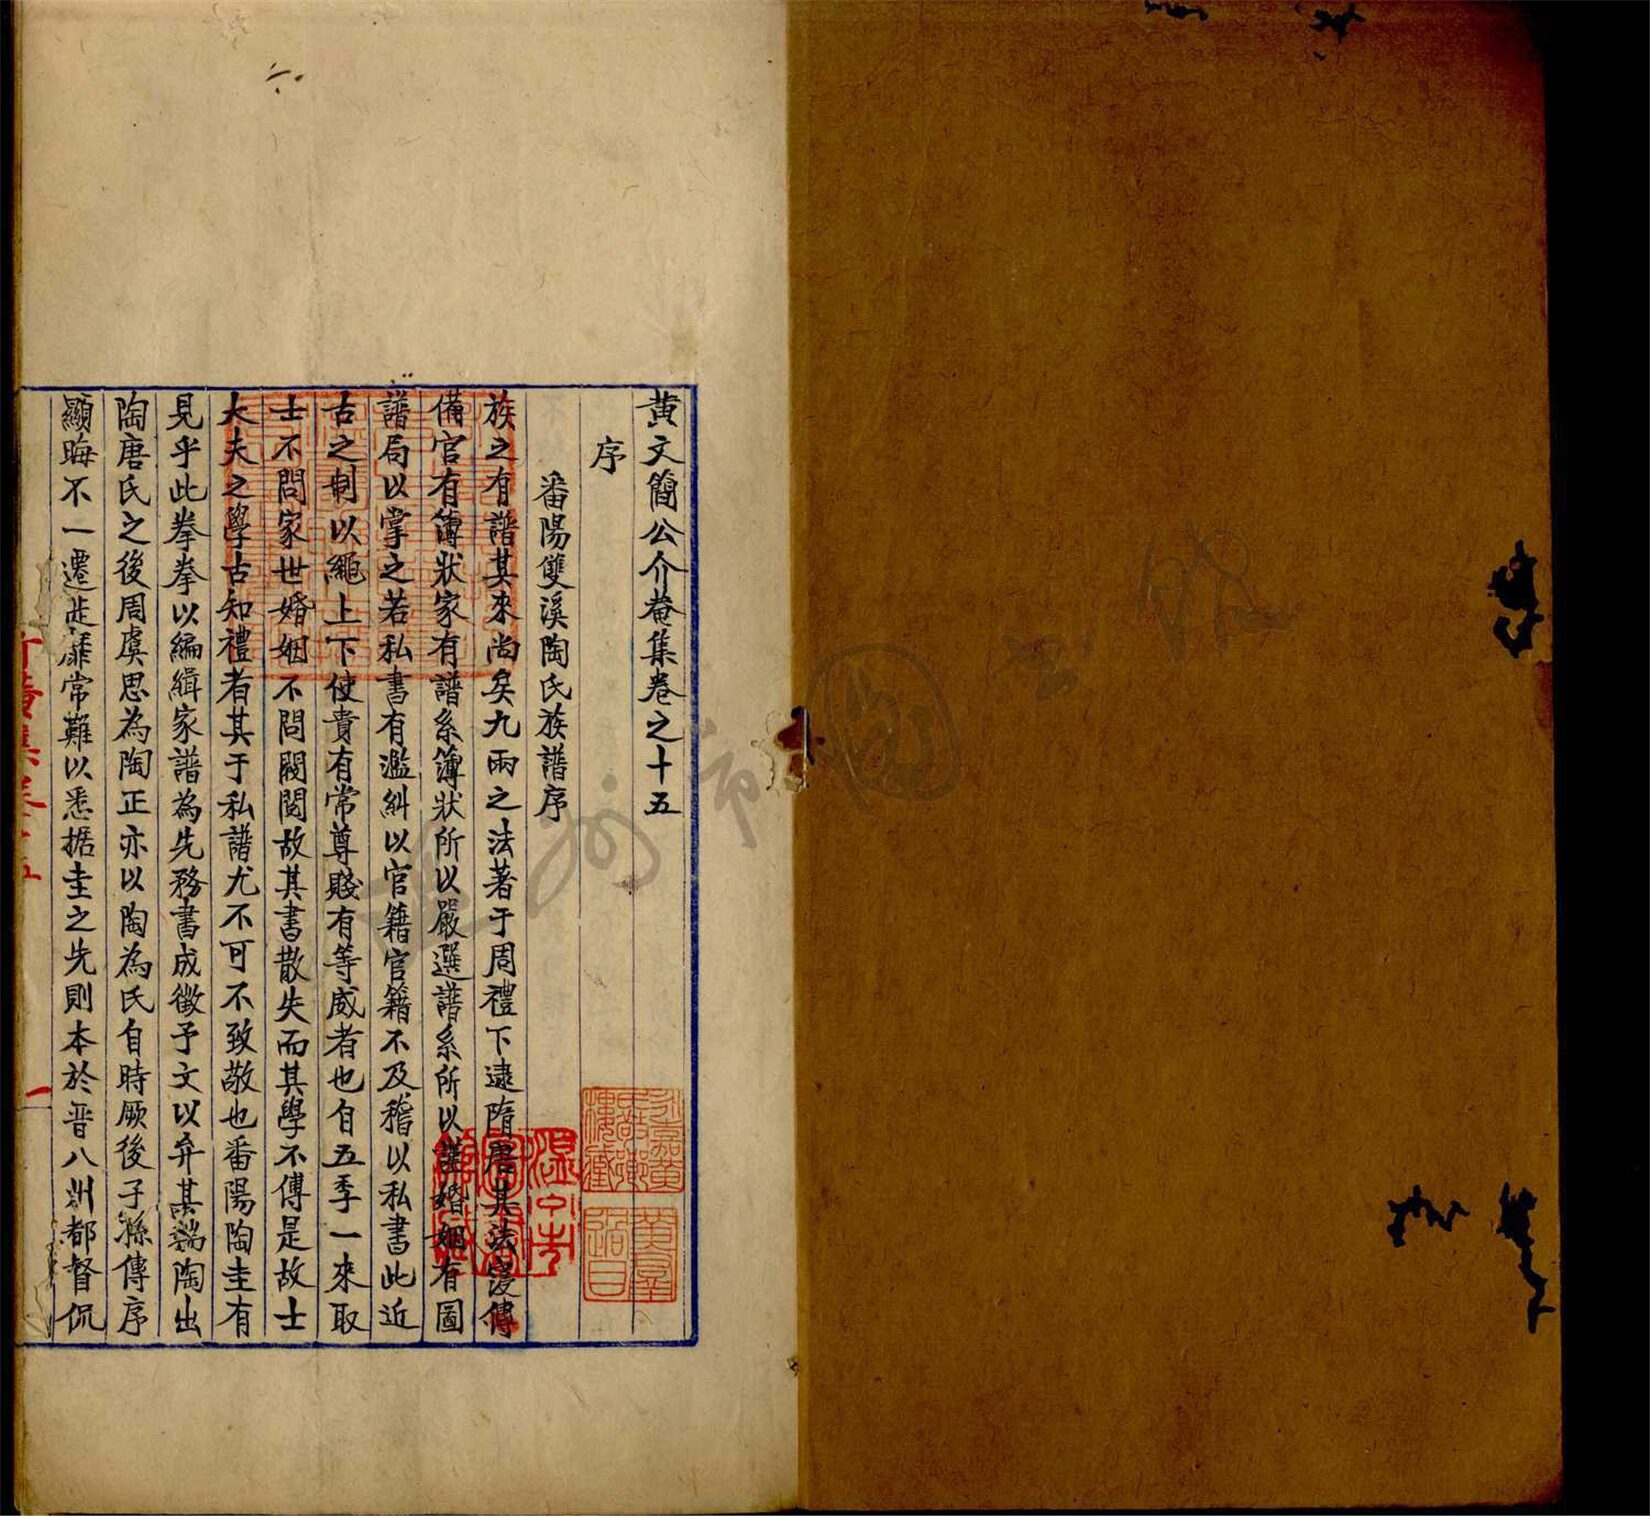 黃文簡公介菴集卷之十五
序
番陽雙溪陶氏族譜序
族之有譜其來尚矣九兩之法著于周禮下逮隋唐其法寖傳
備官有簿狀家有譜系簿狀所以嚴選譜系所以謹婚姻有圖
譜局以掌之若私書有濫糾以官籍官籍不及稽以私書此近
古之制以繩上下使貴有常尊賤有等威者也自五季一來取
士不問家世婚姻不問閥閱故其書散失而其學不傳是故士
大夫之學古知禮者其于私譜尤不可不致敬也番陽陶圭有
見乎此拳拳以編緝家譜為先務書成徵予文以弁其端陶出
陶唐氏之後周虞思為陶正亦以陶為氏自時厥後子孫傳序
顯晦不一遷徙靡常難以悉據圭之先則本於晉八州都督侃
永嘉黃氏敬鄉樓藏
黃羣
溫州市圖書館藏
溫州市圖書館